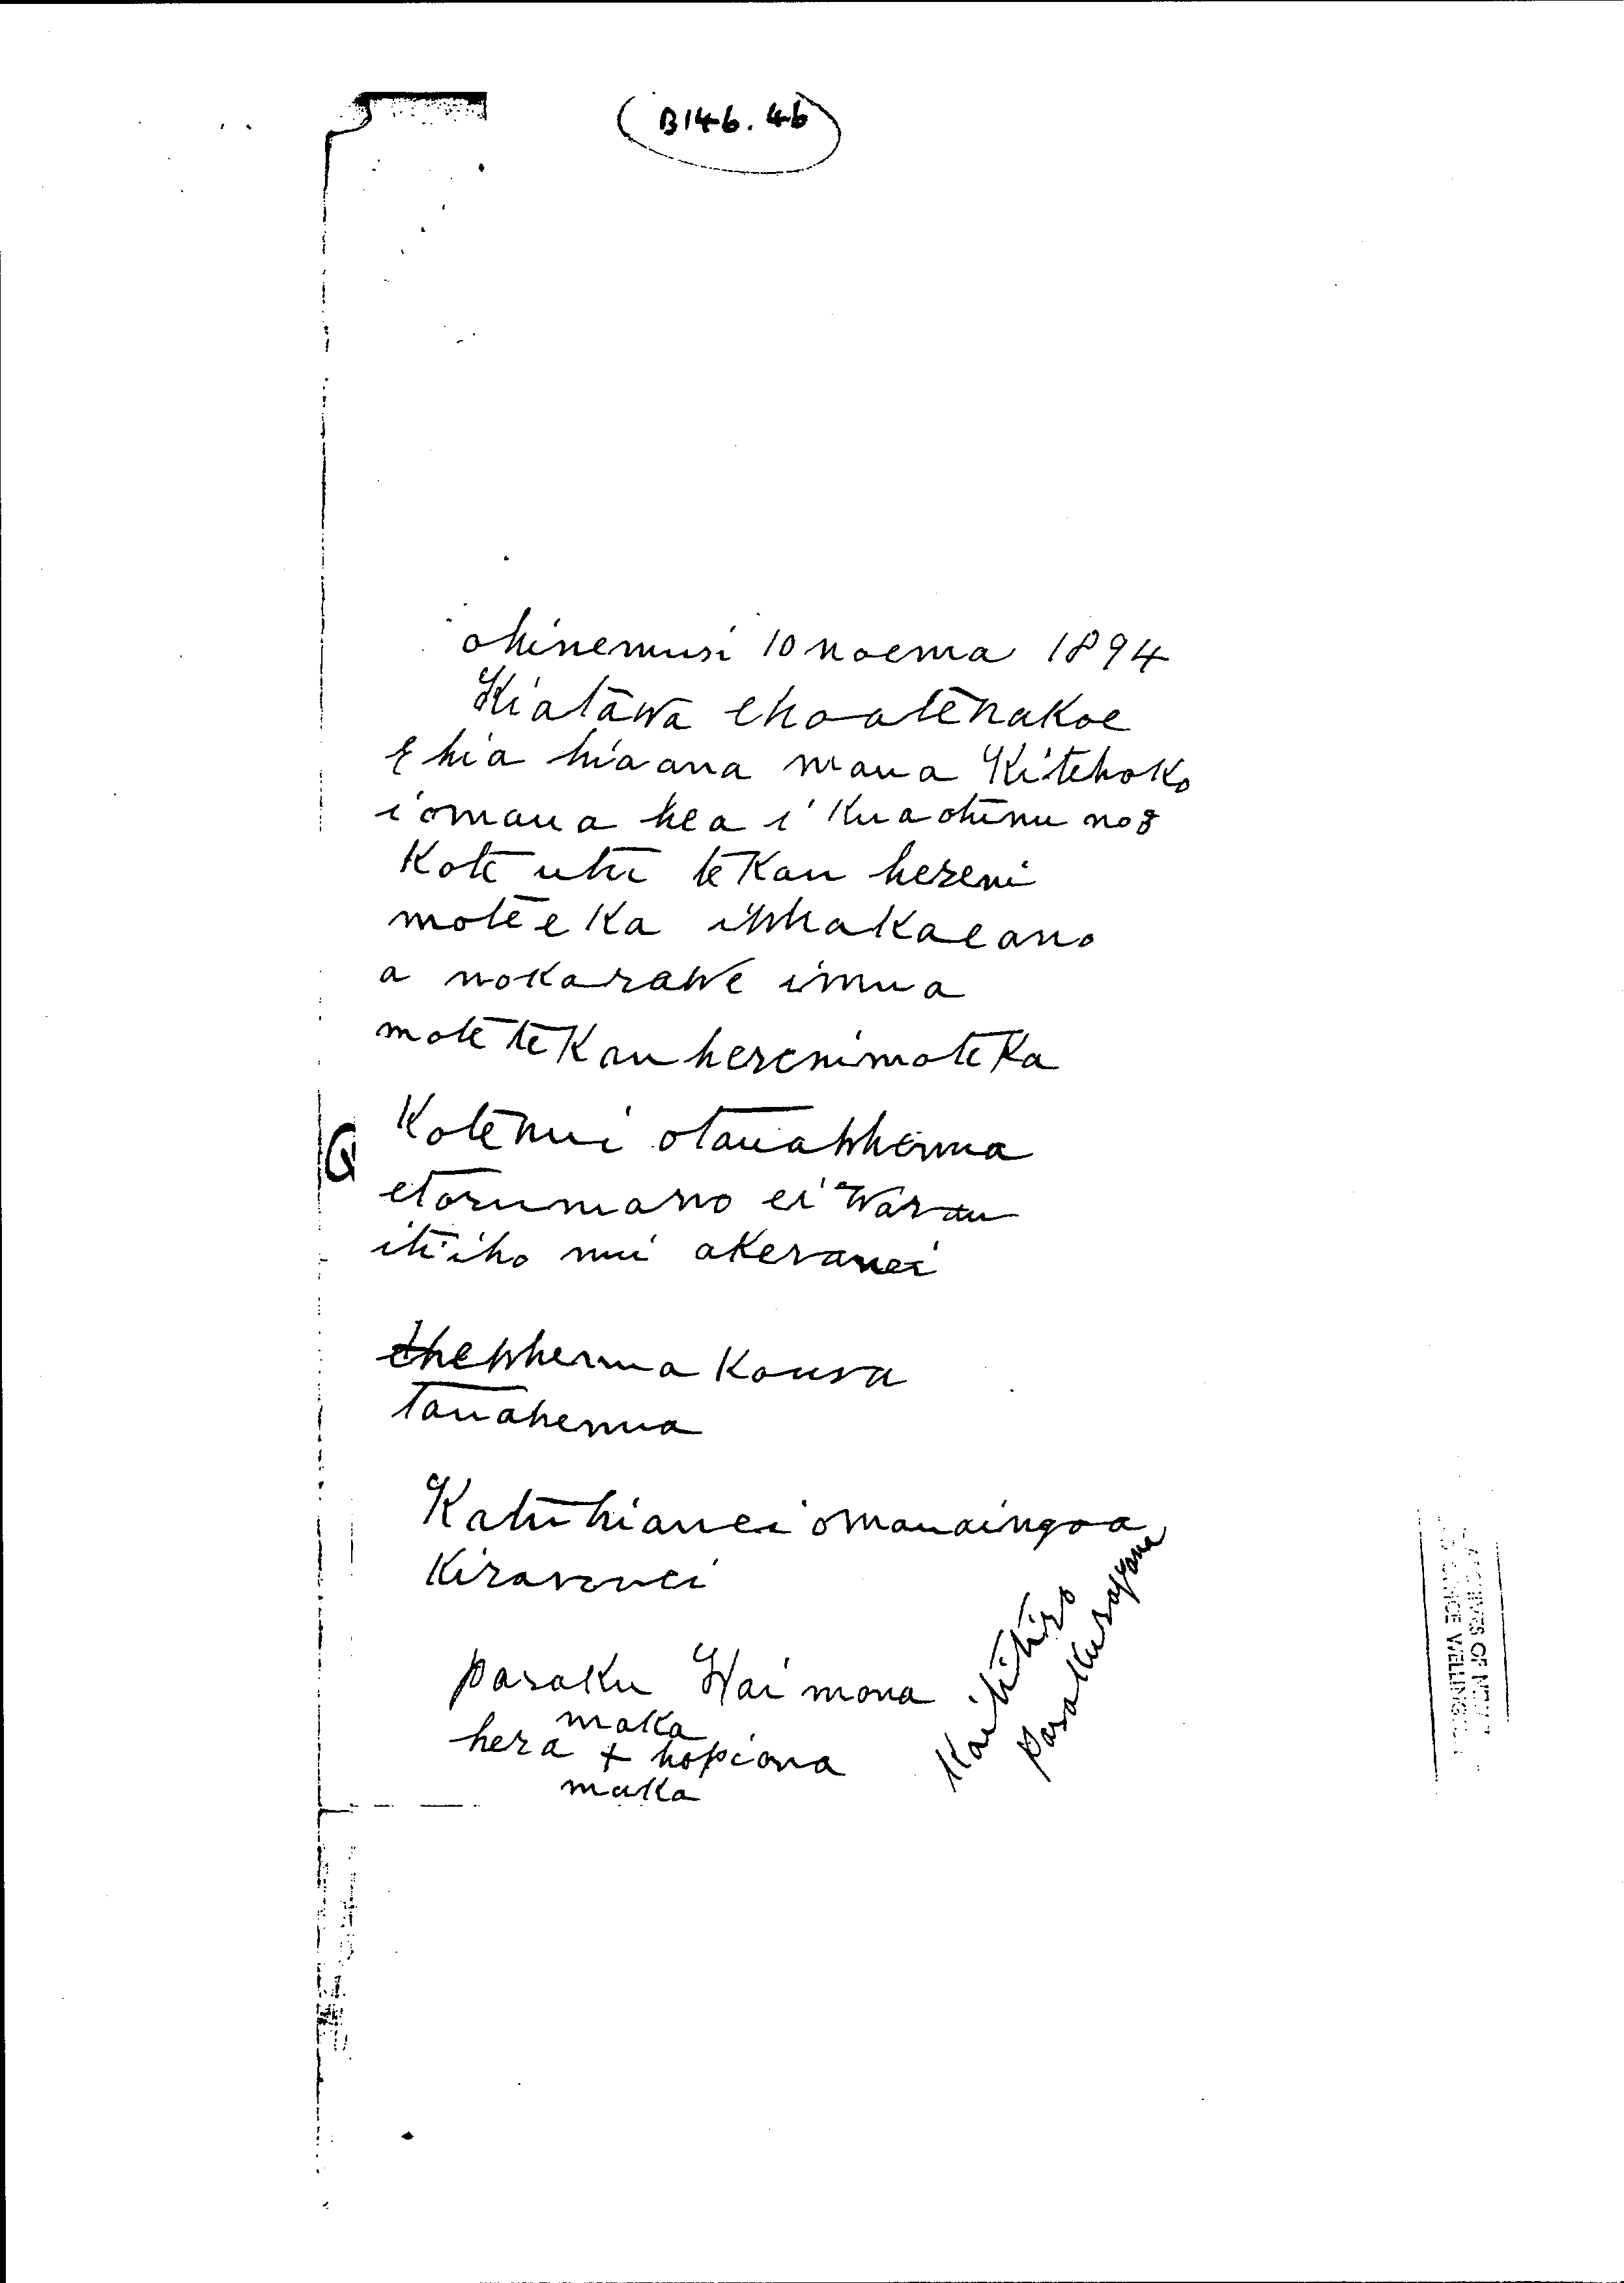 B146.46
ohinemuri 10 noema 1894
Kiatāwa ehoatēnakoe
E hia hiaana maua Kitehoko
i omaua hea i Kuaohinu no 8
Kote utu te Kau hereni
mote eKa iwhakaeano
a noKarawe imua
mote te Kau herenimoteKa
Kotenui otauawhenua
etorumano ei warau
iti iho nui aKeranei
ehewhenua Koura
Tauahenua
Katuhianei omauaingoa
Kiraronei
paraKu Hai mona
maKa
hera + hopiona
maKa
Kaititiro
OF
WELLINGT